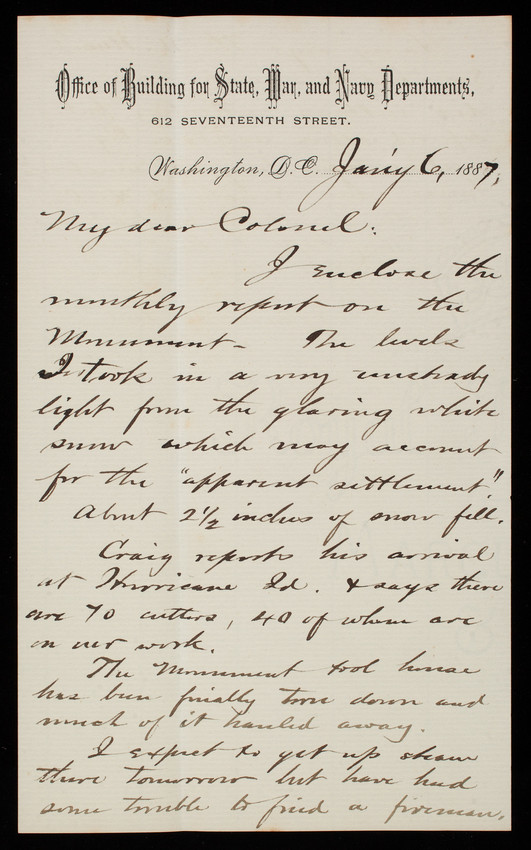 Office of Building for State, War, and Navy Departments,
612 SEVENTEENTH STREET.
Washington, D.C. Jan'y 6, 1887,
My dear Colonel:
I enclose the
monthly report on the
Monument - The levels
I took in a very unsteady
light from the glaring white
snow which may account
for the "apparent settlement"
About 2 1/2 inches of snow fell.
Craig reports his arrival
at Hurricane Id. & says there
are 70 cutters, 40 of whom are
on our work.
The Monument tool house
has been finally torn down and
much of it hauled away.
I expect to get up steam
there tomorrow but have had
some trouble to find a fireman.